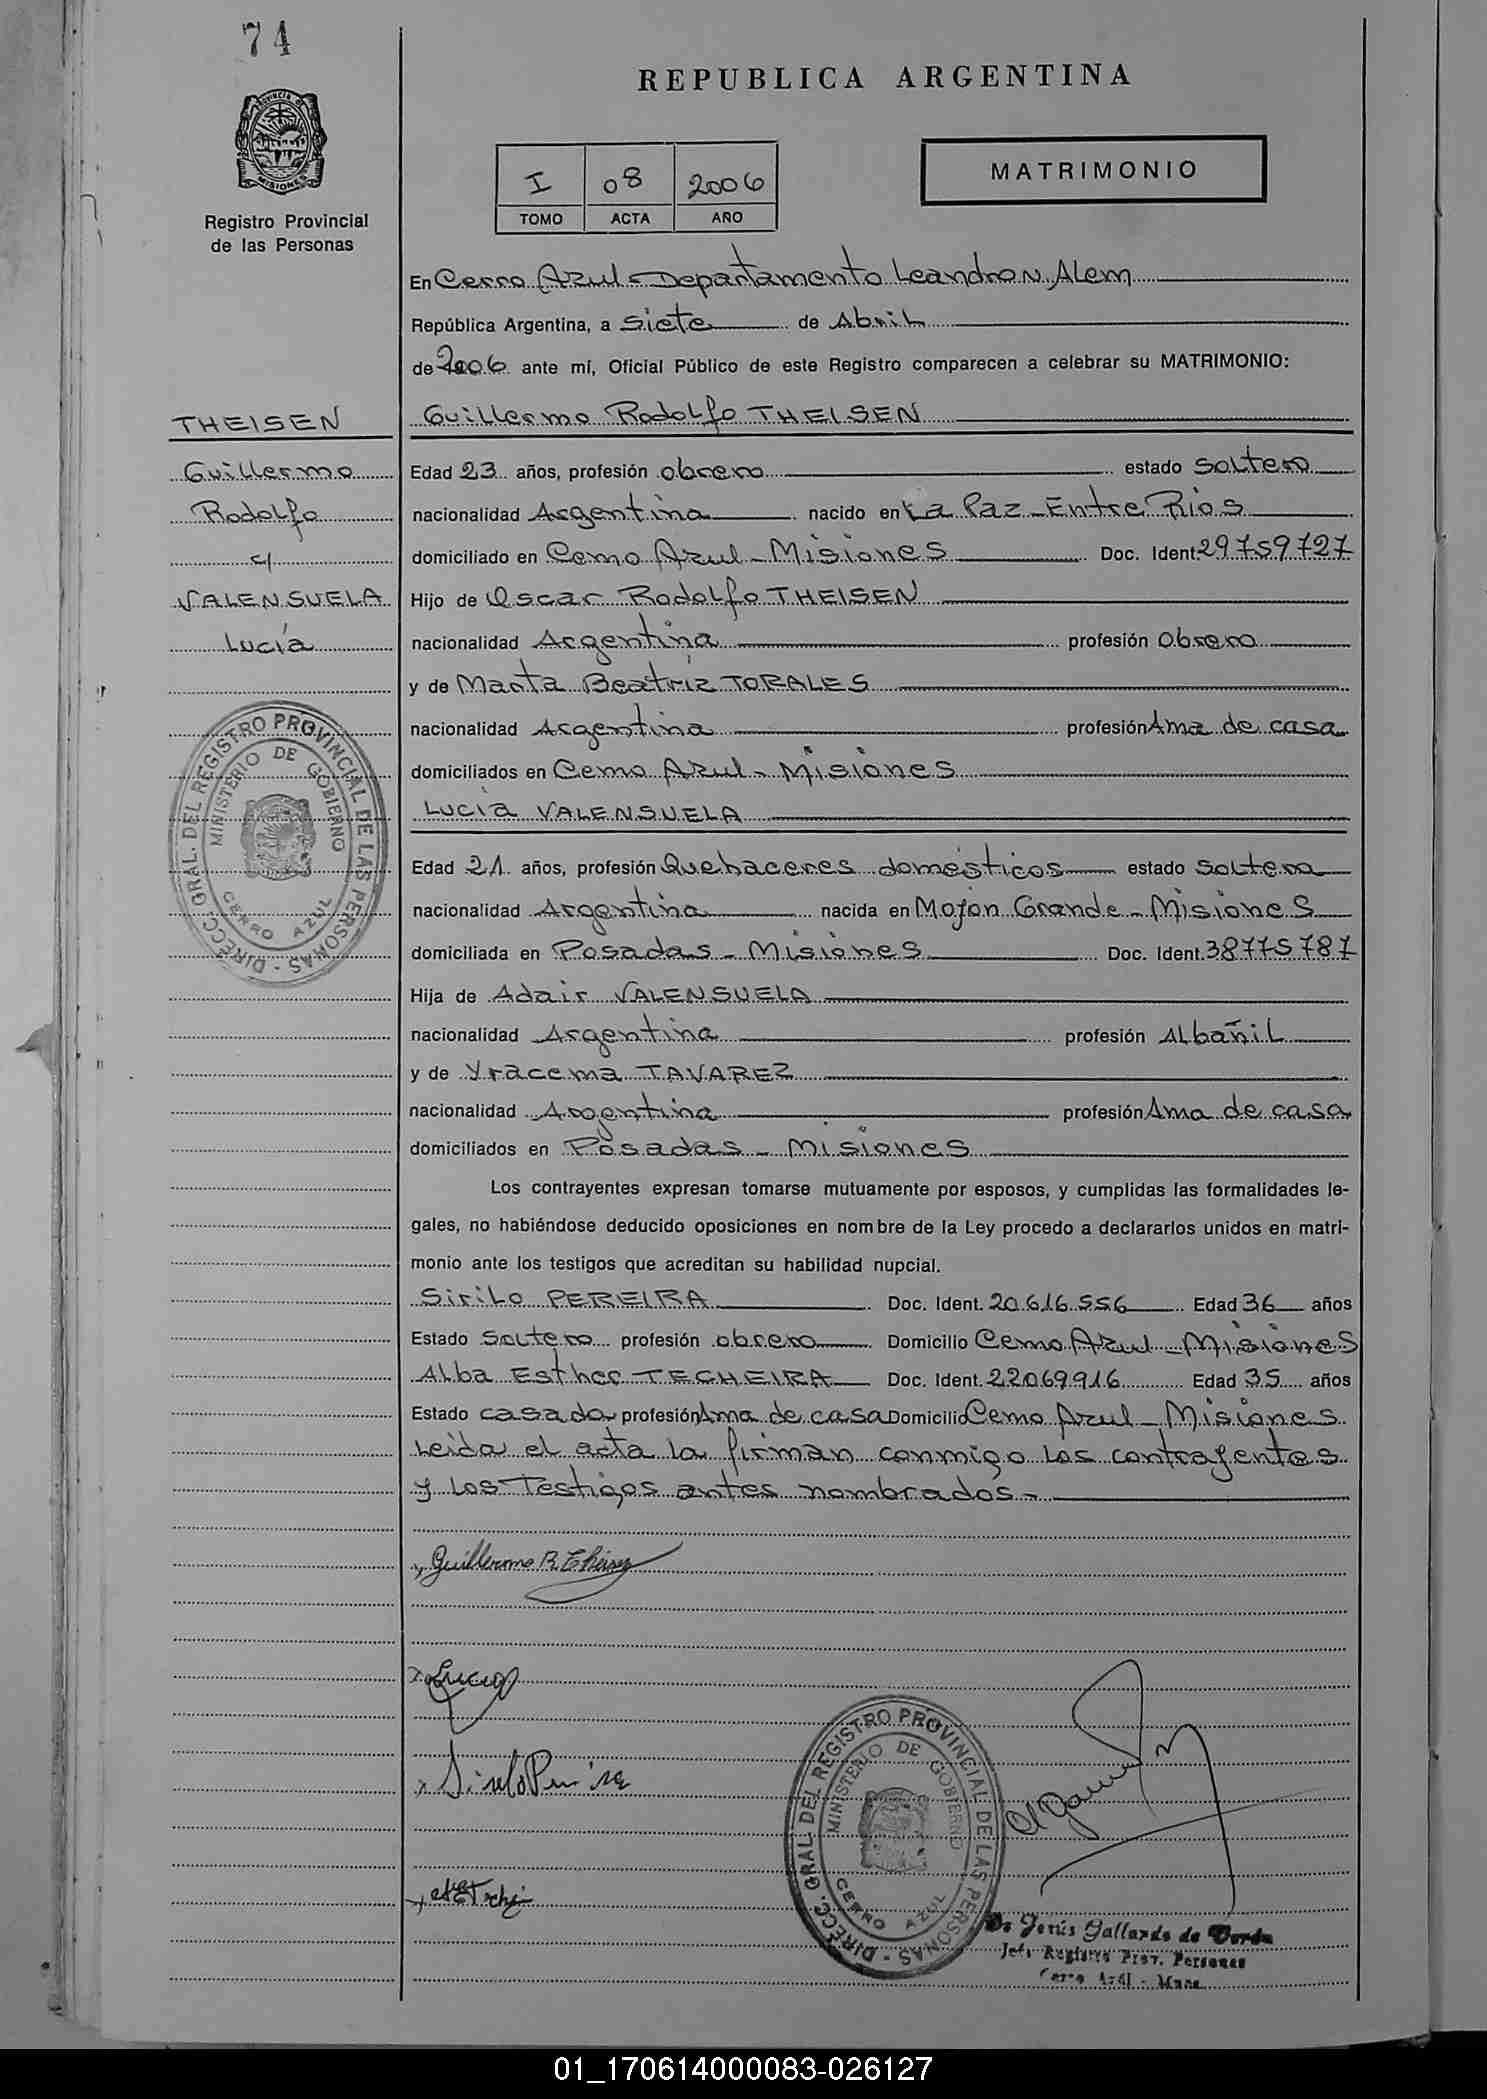 74
REPUBLICA ARGENTINA
PROVINCIA DE
MISIONES
Registro Provincial
de las Personas
I 08 2006
TOMO ACTA AÑO
MATRIMONIO
En Cerro Azul - Departamento Leandro N. Alem
República Argentina, a siete de Abril
de 2006 ante mí, Oficial Público de este Registro comparecen a celebrar su MATRIMONIO:
THEISEN
Guillermo
Rodolfo
c/
VALENSUELA
Lucía
Guillermo Rodolfo THEISEN
Edad 23 años, profesión obrero estado soltero
nacionalidad Argentina nacido en La Paz - Entre Rios
domiciliado en Cerro Azul - Misiones Doc. Ident. 29759727
Hijo de Oscar Rodolfo THEISEN
nacionalidad Argentina profesión obrero
y de Marta Beatriz TORALES
nacionalidad Argentina profesión Ama de casa
domiciliados en Cerro Azul - Misiones
Lucía VALENSUELA
Edad 21 años, profesión Quehaceres domésticos estado soltera
nacionalidad Argentina nacida en Mojon Grande - Misiones
domiciliada en Posadas - Misiones Doc. Ident. 38775787
Hija de Adair VALENSUELA
nacionalidad Argentina profesión Albañil
y de Yracema TAVAREZ
nacionalidad Argentina profesión Ama de casa
domiciliados en Posadas - Misiones
Los contrayentes expresan tomarse mutuamente por esposos, y cumplidas las formalidades le-
gales, no habiéndose deducido oposiciones en nombre de la Ley procedo a declararlos unidos en matri-
monio ante los testigos que acreditan su habilidad nupcial.
Sirilo PEREIRA Doc. Ident. 20.616.556 Edad 36 años
Estado soltero profesión obrero Domicilio Cerro Azul - Misiones
Alba Esther TECHEIRA Doc. Ident. 22069916 Edad 35 años
Estado casada profesión Ama de casa Domicilio Cerro Azul - Misiones
Leida el acta la firman conmigo los contrayentes
y los Testigos antes nombrados.-
DIRECC. GRAL. DEL REGISTRO PROVINCIAL DE LAS PERSONAS -
MINISTERIO DE GOBIERNO
CERRO AZUL
Guillermo R. Theisen
Lucia
Sirilo Pereira
DIRECC. GRAL. DEL REGISTRO PROVINCIAL DE LAS PERSONAS -
MINISTERIO DE GOBIERNO
CERRO AZUL
Jesús Gallardo de
Jefe Registro Prov. Personas
Cerro Azul - Mnes.
01_170614000083-026127